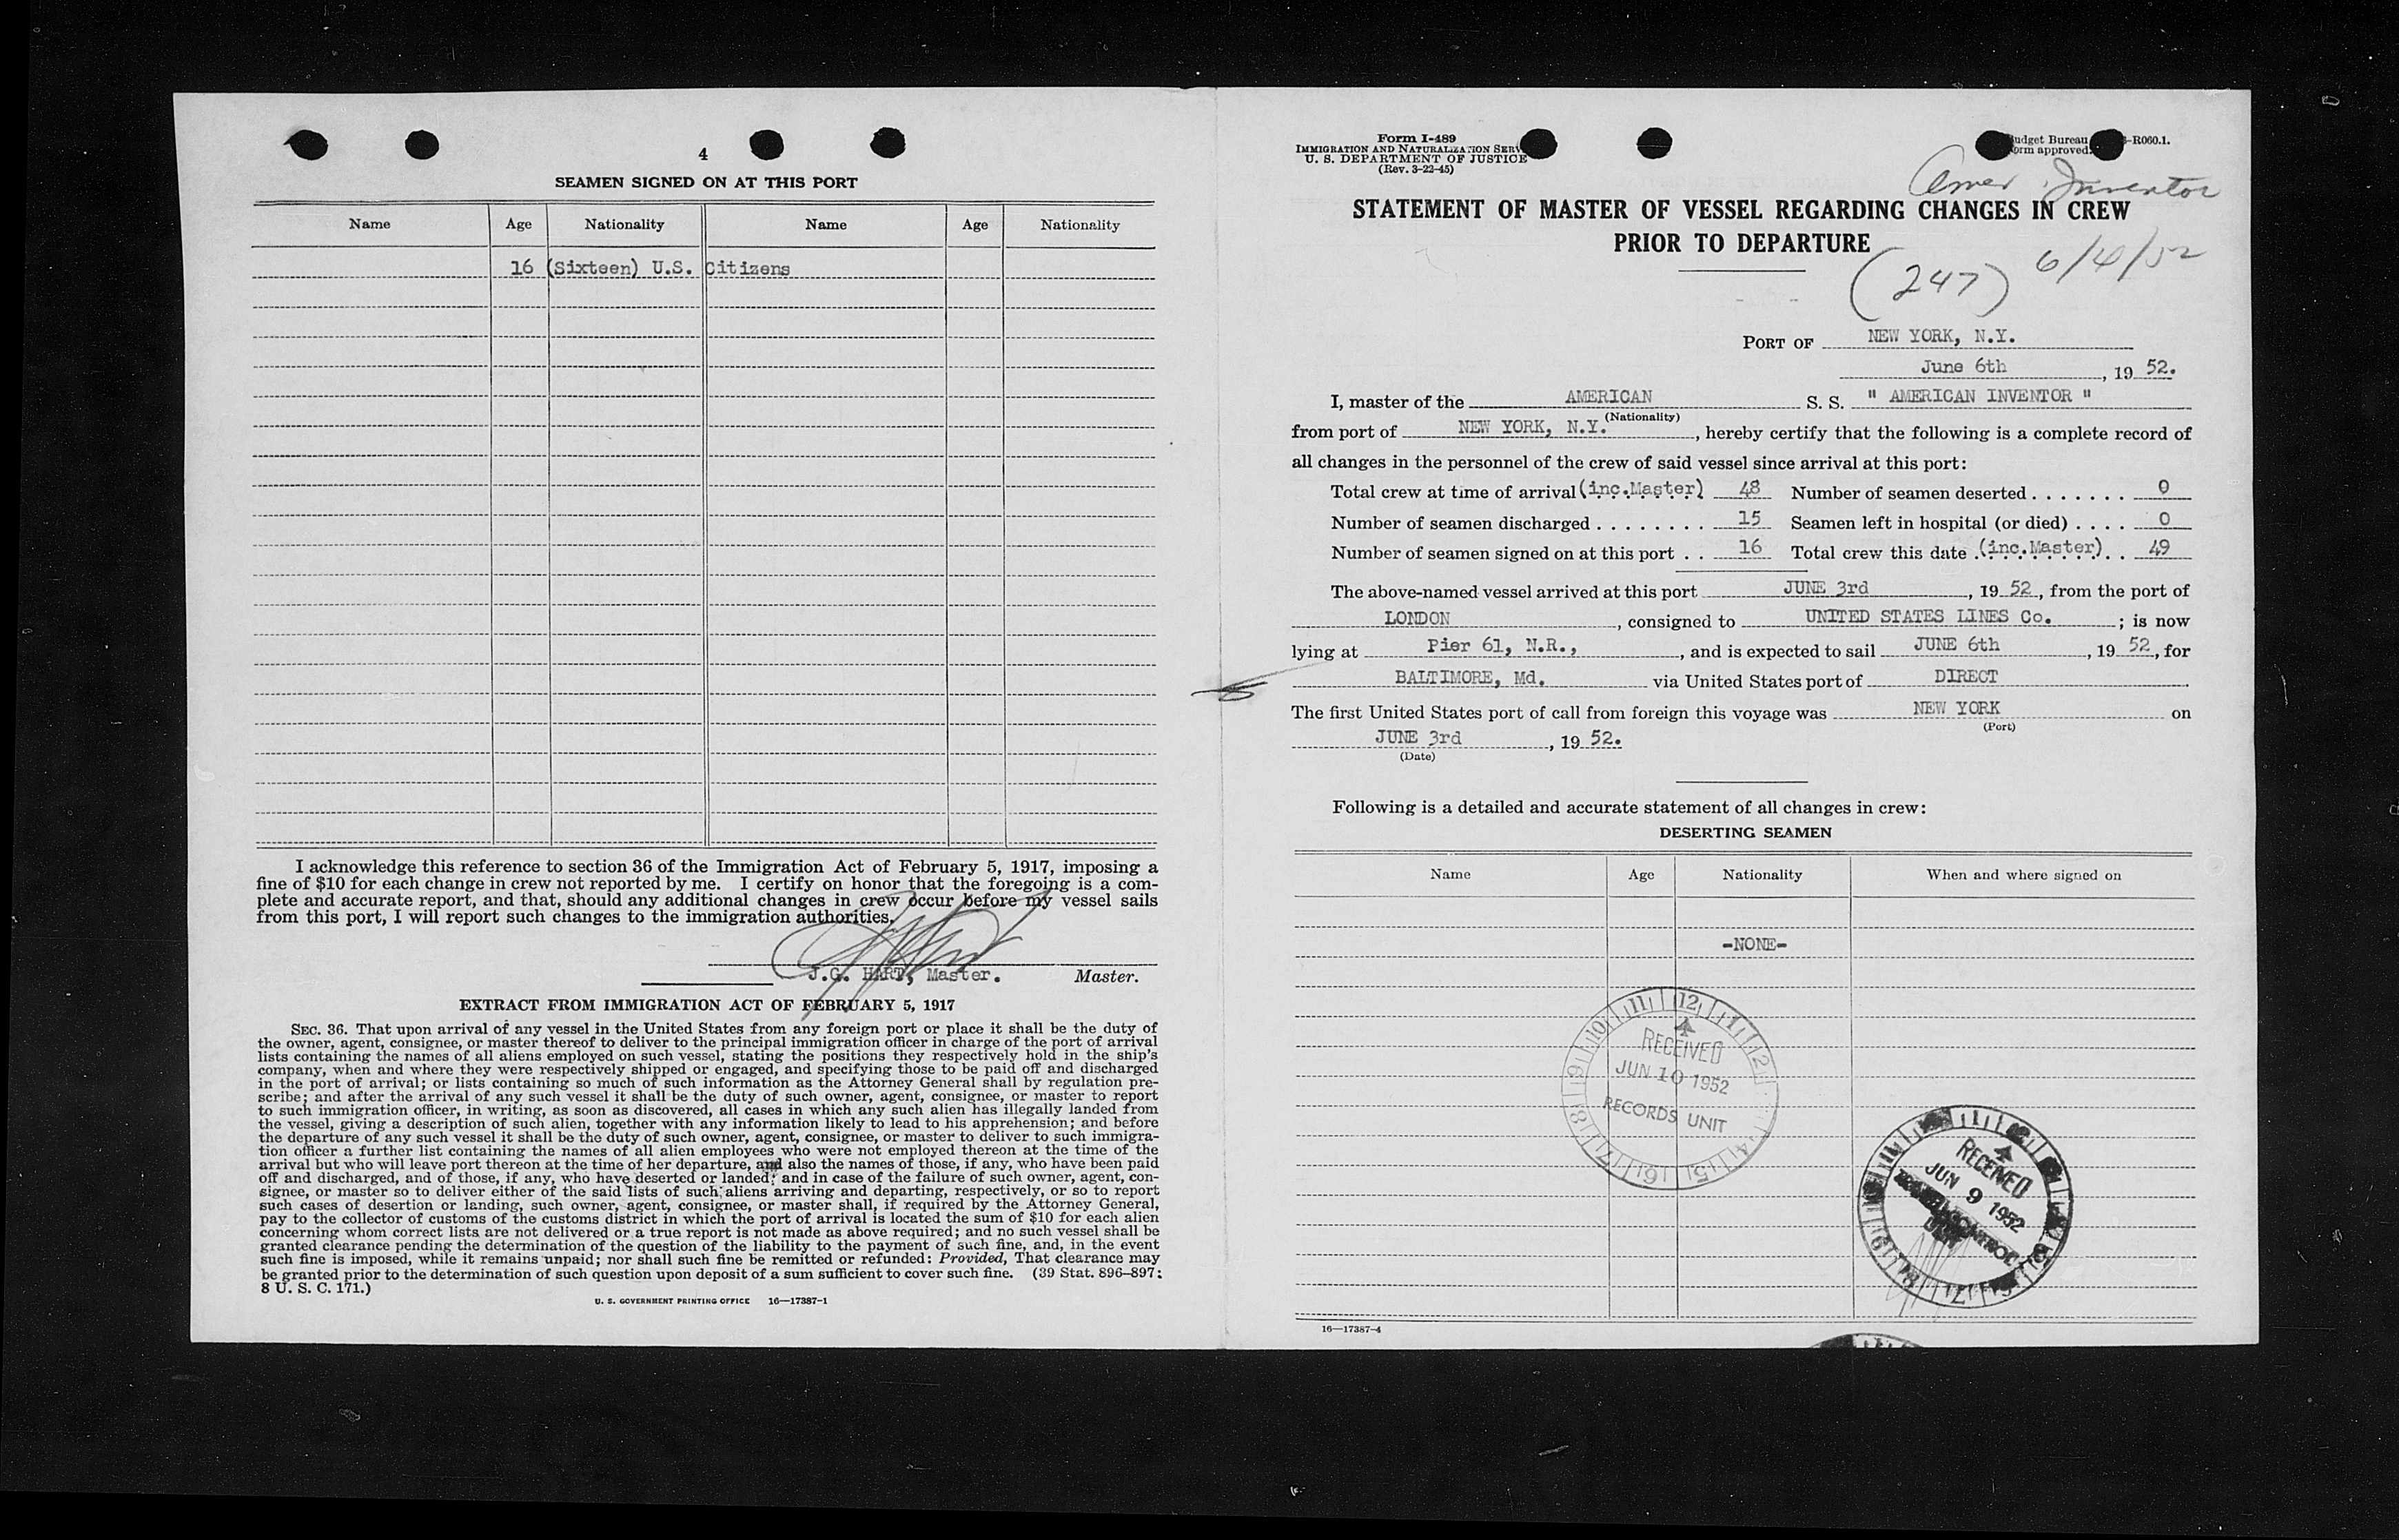 4
SEAMEN SIGNED ON AT THIS PORT
Name Age Nationality Name Age Nationality
16 (Sixteen) U.S. Citizens
I acknowledge this reference to section 36 of the Immigration Act of February 5, 1917, imposing a
fine of $10 for each change in crew not reported by me. I certify on honor that the foregoing is a com-
plete and accurate report, and that, should any additional changes in crew occur before my vessel sails
from this port, I will report such changes to the immigration authorities.
J.G. HART, Master. Master.
EXTRACT FROM IMMIGRATION ACT OF FEBRUARY 5, 1917
SEC. 36. That upon arrival of any vessel in the United States from any foreign port or place it shall be the duty of
the owner, agent, consignee, or master thereof to deliver to the principal immigration officer in charge of the port of arrival
lists containing the names of all aliens employed on such vessel, stating the positions they respectively hold in the ship's
company, when and where they were respectively shipped or engaged, and specifying those to be paid off and discharged
in the port of arrival; or lists containing so much of such information as the Attorney General shall by regulation pre-
scribe; and after the arrival of any such vessel it shall be the duty of such owner, agent, consignee, or master to report
to such immigration officer, in writing, as soon as discovered, all cases in which any such alien has illegally landed from
the vessel, giving a description of such alien, together with any information likely to lead to his apprehension; and before
the departure of any such vessel it shall be the duty of such owner, agent, consignee, or master to deliver to such immigra-
tion officer a further list containing the names of all alien employees who were not employed thereon at the time of the
arrival but who will leave port thereon at the time of her departure, and also the names of those, if any, who have been paid
off and discharged, and of those, if any, who have deserted or landed; and in case of the failure of such owner, agent, con-
signee, or master so to deliver either of the said lists of such aliens arriving and departing, respectively, or so to report
such cases of desertion or landing, such owner, agent, consignee, or master shall, if required by the Attorney General,
pay to the collector of customs of the customs district in which the port of arrival is located the sum of $10 for each alien
concerning whom correct lists are not delivered or a true report is not made as above required; and no such vessel shall be
granted clearance pending the determination of the question of the liability to the payment of such fine, and, in the event
such fine is imposed, while it remains unpaid; nor shall such fine be remitted or refunded: Provided, That clearance may
be granted prior to the determination of such question upon deposit of a sum sufficient to cover such fine. (39 Stat. 896–897;
8 U. S. C. 171.)
U. S. GOVERNMENT PRINTING OFFICE 16—17387-1
Form I-489
IMMIGRATION AND NATURALIZATION SERV
U. S. DEPARTMENT OF JUSTICE
(Rev. 3-22-45)
udget Bureau -R060.1.
orm approved.
Amer Inventor
STATEMENT OF MASTER OF VESSEL REGARDING CHANGES IN CREW
PRIOR TO DEPARTURE
(247) 6/4/52
PORT OF NEW YORK, N.Y.
June 6th, 19 52.
I, master of the AMERICAN S. S. " AMERICAN INVENTOR "
(Nationality)
from port of NEW YORK, N.Y., hereby certify that the following is a complete record of
all changes in the personnel of the crew of said vessel since arrival at this port:
Total crew at time of arrival (inc.Master) 48 Number of seamen deserted . . . . . . . 0
Number of seamen discharged . . . . . . . . 15 Seamen left in hospital (or died) . . . . 0
Number of seamen signed on at this port . . 16 Total crew this date (inc.Master) . . 49
The above-named vessel arrived at this port JUNE 3rd, 19 52, from the port of
LONDON, consigned to UNITED STATES LINES Co.; is now
lying at Pier 61, N.R., , and is expected to sail JUNE 6th, 19 52, for
BALTIMORE, Md. via United States port of DIRECT
The first United States port of call from foreign this voyage was NEW YORK on
(Port)
JUNE 3rd, 19 52.
(Date)
Following is a detailed and accurate statement of all changes in crew:
DESERTING SEAMEN
Name Age Nationality When and where signed on
-NONE-
RECEIVED
JUN 10 1952
RECORDS UNIT
RECEIVED
JUN 9 1952
16—17387-4